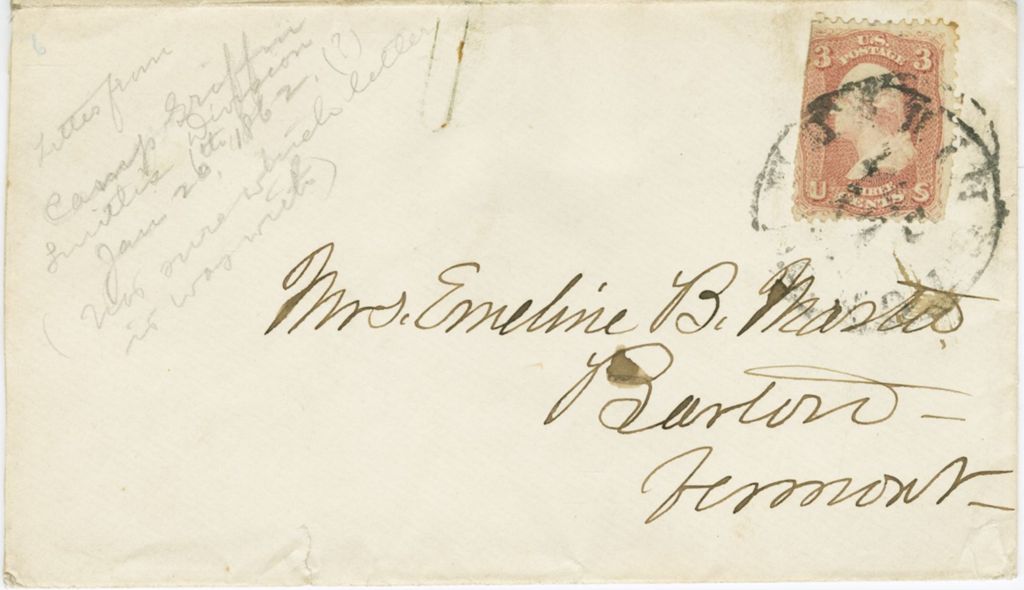 6
Letter from
Camp Griffin
Smith's Division
Jan 26th, 1862. (?)
(Not sure which letter
is way which)
U.S.
POSTAGE
3 3
U THREE S
CENTS
Mrs. Emeline B. Master
Barton -
Vermont -